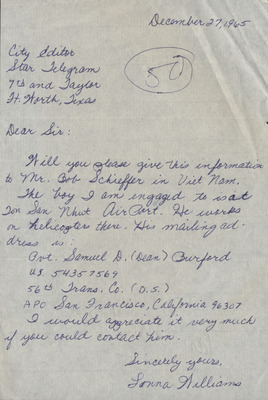 December 27, 1965
50
City Editor
Star Telegram
7th and Taylor
Ft. Worth, Texas
Dear Sir:
Will you please give this information
to Mr. Bob Schieffer in Viet Nam.
The boy I am engaged to is at
Ton San Nhut AirPort. He works
on helicopters there. His mailing ad-
dress is:
Pvt. Samuel D. (Dean) Burford
US 54357569
56th Trans. Co. (D.S.)
APO San Francisco, California 96307
I would appreciate it very much
if you could contact him.
Sincerely yours,
Donna Williams